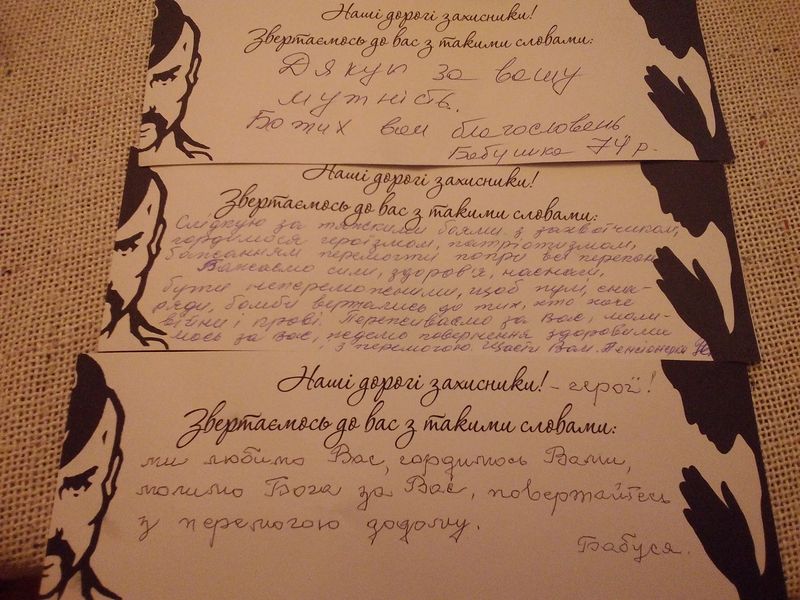 Наші дорогі захисники!
Звертаємось до вас з такими словами:
Дякуы за вашу
мужність.
Божих вам благословень
Бабушка 74 р.
Наші дорогі захисники!
Звертаємось до вас з такими словами:
Слідкую за тяжкими боями з загватчиком,
гордимося героїзмом, патріотизмом,
бажанням перемогти попри всі перепони
Бажаємо сили, здоров'я, наснаги,
бути непереможеними, щоб кулі, сна-
ряди, бомби вертались до тих, хто хоче
війни і крові. Переживаємо за Вас, моли-
мось за Вас, ждемо повернення здоровими
і з перемогою. Щасти Вам. Пенсіонерка
Наші дорогі захисники! - герої!
Звертаємось до вас з такими словами:
ми любимо Вас, гордимось Вами,
молимо Бога за Вас, повертайтесь
з перемогою додому.
Бабуся.